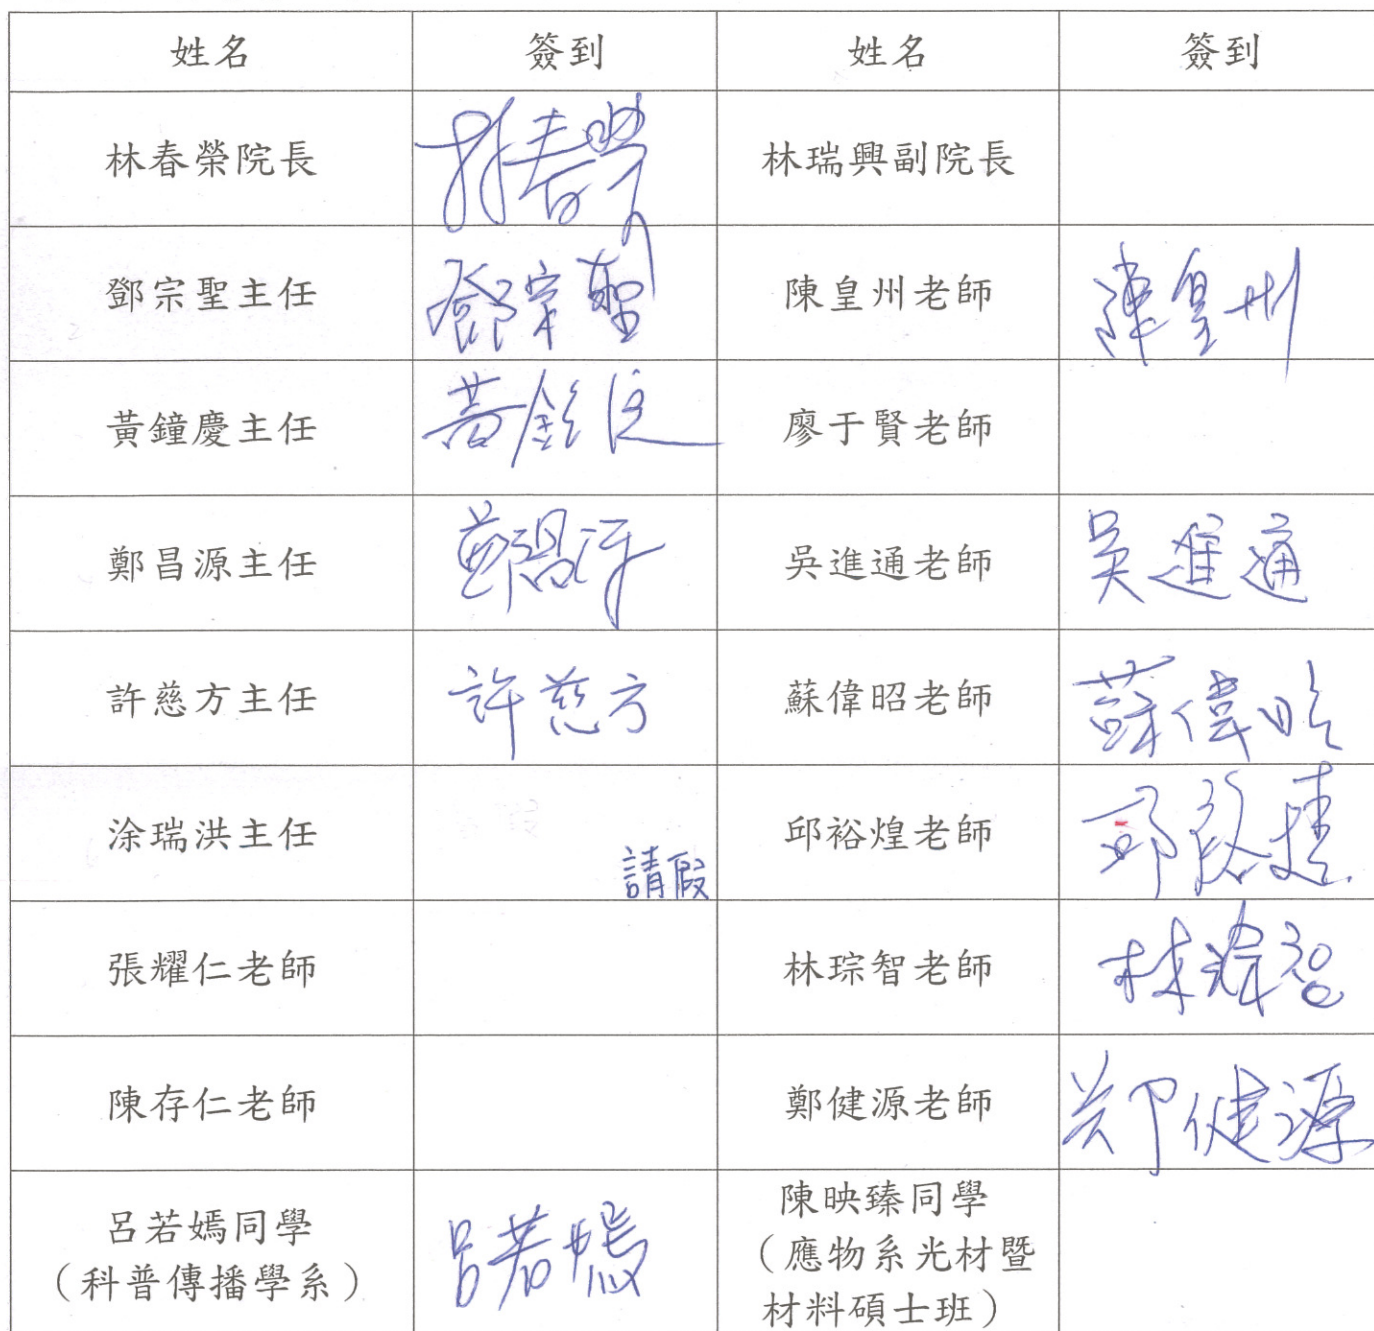 姓名 簽到 姓名 簽到
林春榮院長 林春榮 林瑞興副院長
鄧宗聖主任 鄧宗聖 陳皇州老師 陳皇州
黃鐘慶主任 黃鐘慶 廖于賢老師
鄭昌源主任 鄭昌源 吳進通老師 吳進通
許慈方主任 許慈方 蘇偉昭老師 蘇偉昭
涂瑞洪主任 請假 邱裕煌老師 邱裕煌
張耀仁老師 林琮智老師 林琮智
陳存仁老師 鄭健源老師 鄭健源
呂若嫣同學 呂若嫣 陳映臻同學
（科普傳播學系） （應物系光材暨
材料碩士班）